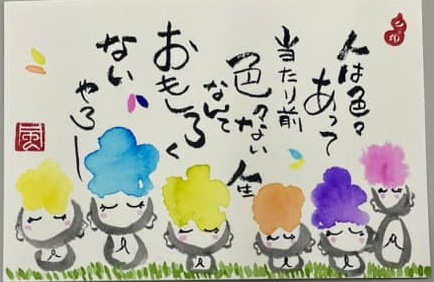 人は色々
あって
当たり前
色のない人生
なんて
おもしろく
ない
やろー